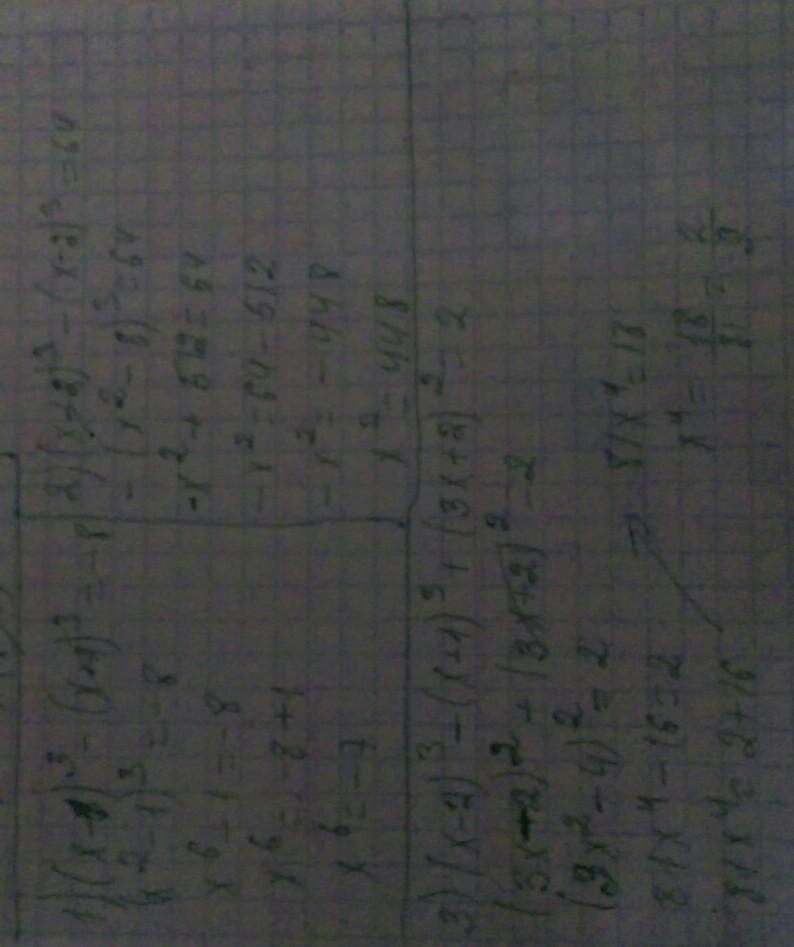 1) (x-1)³ - (x+1)³ = -8
(x² - 1)³ = -8
x⁶ - 1 = -8
x⁶ = -8 + 1
x⁶ = -7
2) (x+2)³ - (x-2)³ = 64
- (x² - 8)³ = 64
-x² + 512 = 64
-x² = 64 - 512
-x² = -448
x² = 448
3) (x-2)³ - (x+1)³ + (3x+2)² = 2
(3x-2)² + (3x+2)² = 2
(9x² - 4)² = 2
81x⁴ - 16 = 2
81x⁴ = 2 + 16
81x⁴ = 18
x⁴ = 18/81 = 2/9